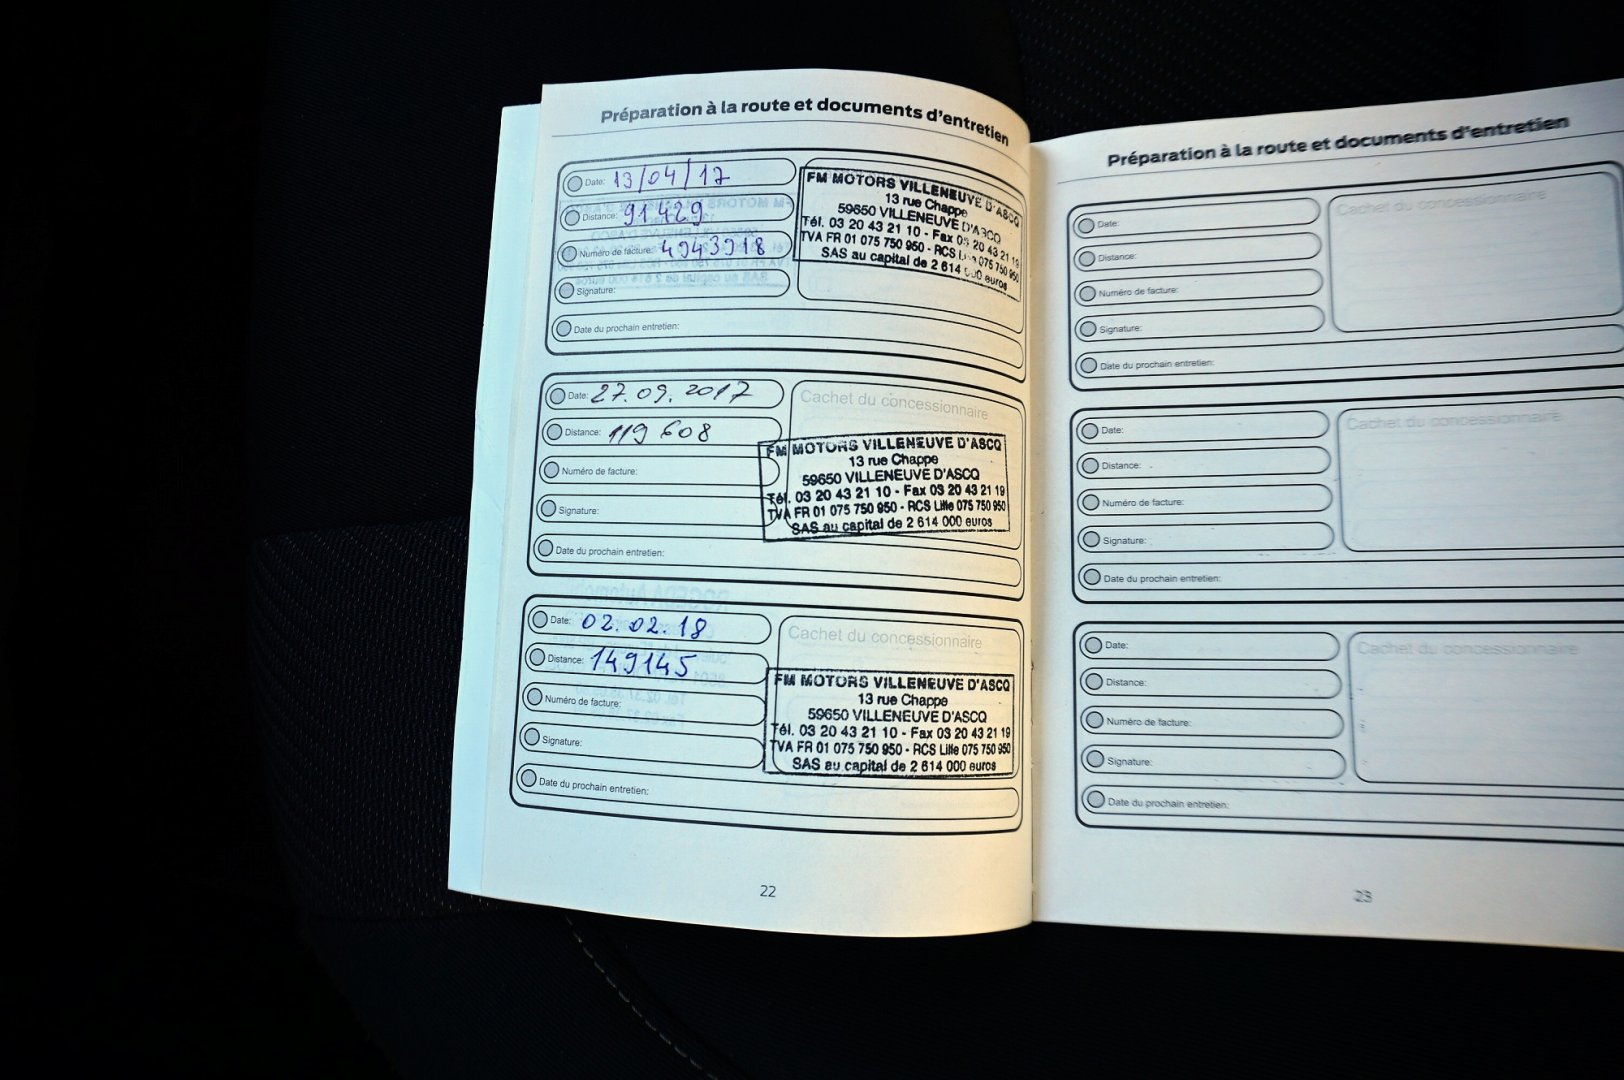 Préparation à la route et documents d'entretien
Date: 13/04/17
Distance: 91 429
Numéro de facture: 4943918
Signature:
Date du prochain entretien:
FM MOTORS VILLENEUVE D'ASCQ
13 rue Chappe
59650 VILLENEUVE D'ASCQ
Tél. 03 20 43 21 10 - Fax 03 20 43 21 19
TVA FR 01 075 750 950 - RCS Lille 075 750 950
SAS au capital de 2 614 000 euros
Date: 27.09.2017
Distance: 119 608
Numéro de facture:
Signature:
Date du prochain entretien:
Cachet du concessionnaire
FM MOTORS VILLENEUVE D'ASCQ
13 rue Chappe
59650 VILLENEUVE D'ASCQ
Tél. 03 20 43 21 10 - Fax 03 20 43 21 19
TVA FR 01 075 750 950 - RCS Lille 075 750 950
SAS au capital de 2 614 000 euros
Date: 02.02.18
Distance: 149145
Numéro de facture:
Signature:
Date du prochain entretien:
Cachet du concessionnaire
FM MOTORS VILLENEUVE D'ASCQ
13 rue Chappe
59650 VILLENEUVE D'ASCQ
Tél. 03 20 43 21 10 - Fax 03 20 43 21 19
TVA FR 01 075 750 950 - RCS Lille 075 750 950
SAS au capital de 2 614 000 euros
22
Préparation à la route et documents d'entretien
Date:
Distance:
Numéro de facture:
Signature:
Date du prochain entretien:
Cachet du concessionnaire
Date:
Distance:
Numéro de facture:
Signature:
Date du prochain entretien:
Cachet du concessionnaire
Date:
Distance:
Numéro de facture:
Signature:
Date du prochain entretien:
Cachet du concessionnaire
23